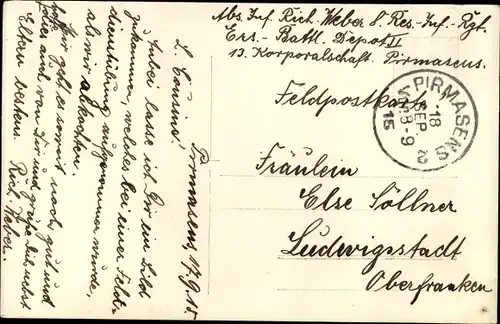 Abs. Inf. Rich. Weber 8. Res.-Inf.-Rgt.
Ers.-Battl. Depot II
13. Korporalschaft. Pirmasens.
Feldpostkarte!
PIRMASENS
18
SEP
V 8-9
15
Fräulein
Else Söllner
Ludwigsstadt
Oberfranken
Pirmasens, 17.9.15
L. Cousine!
Anbei lasse ich Dir ein Bild
zukommen, welches bei einer Feld-
dienstübung aufgenommen wurde,
als wir abkochten.
Mir geht es soweit noch gut und
hoffe auch von Dir und grüße Dich nebst
Eltern bestens. Rich. Weber.